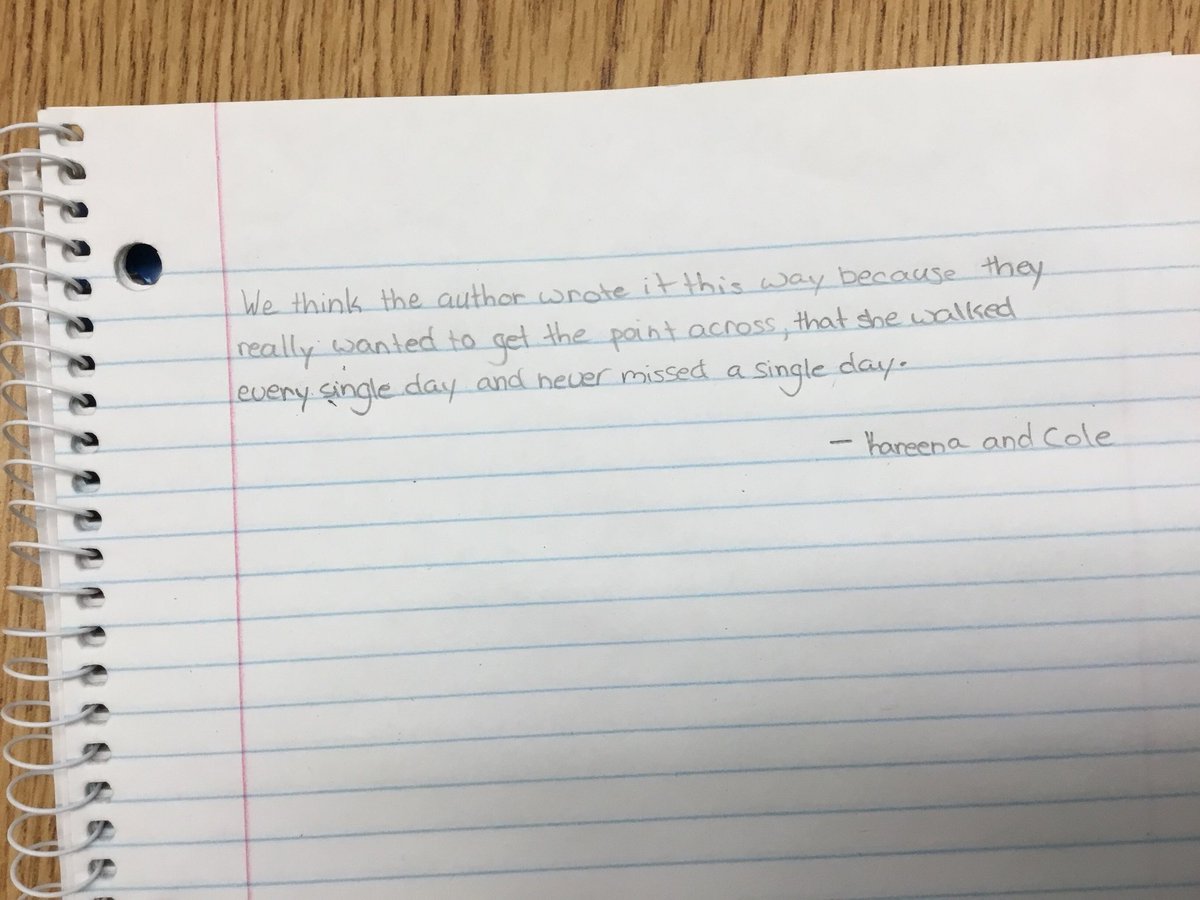 We think the author wrote it this way because they
really wanted to get the point across, that she walked
every single day and never missed a single day.
— Kareena and Cole